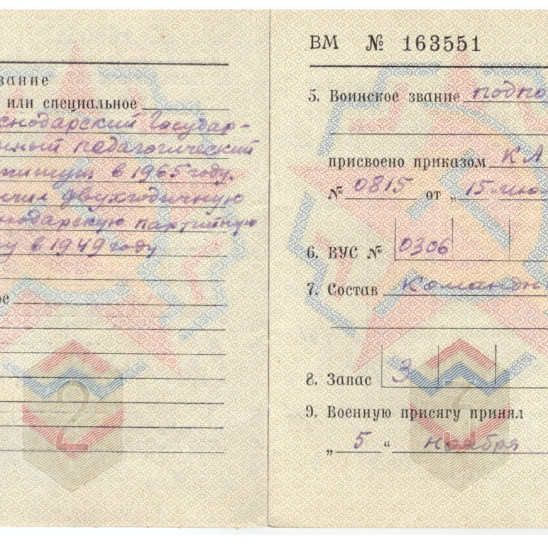 зание
или специальное
снодарский Государ-
нный педагогический
титут в 1965 году.
нчил двухгодичную
нодарскую партийную
у в 1949 году
ое
2
ВМ № 163551
5. Воинское звание подпо
присвоено приказом КА
№ 0815 от „ 15 июл
6. ВУС № 0306
7. Состав Командн
8. Запас 3
9. Военную присягу принял
„ 5 “ Ноября